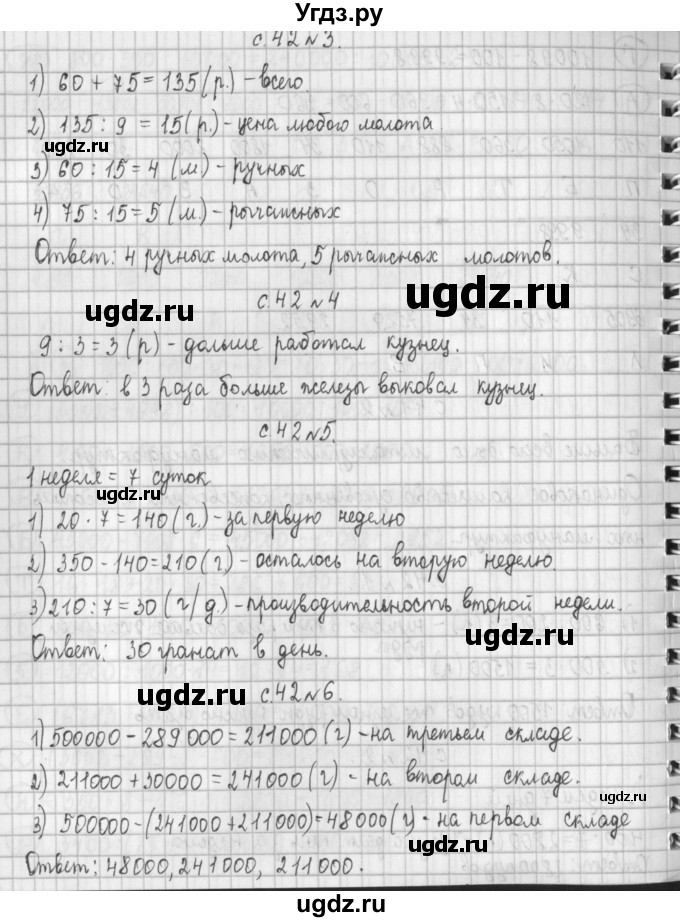 Угдз.ру
с.42 №3.
1) 60 + 75 = 135 (р.) - всего.
2) 135 : 9 = 15 (р.) - цена любого молота
ugdz.ru
3) 60 : 15 = 4 (м.) - ручных
4) 75 : 15 = 5 (м.) - рычажных
Ответ: 4 ручных молота, 5 рычажных молотов.
ugdz.ru
с.42 №4
ugdz.ru
9 : 3 = 3 (р) - дольше работал кузнец.
Ответ: в 3 раза больше железы выковал кузнец.
с.42 №5.
1 неделя = 7 суток
ugdz.ru
1) 20 · 7 = 140 (г.) - за первую неделю
2) 350 - 140 = 210 (г.) - осталось на вторую неделю.
3) 210 : 7 = 30 (г/д.) - производительность второй недели.
ugdz.ru
Ответ: 30 гранат в день.
ugdz.ru
с.42 №6.
1) 500000 - 289000 = 211000 (г) - на третьем складе.
2) 211000 + 30000 = 241000 (г) - на втором складе.
ugdz.ru
3) 500000 - (241000 + 211000) = 48000 (г) - на первом складе
ugdz.ru
Ответ: 48000, 241000, 211000.
ugdz.ru